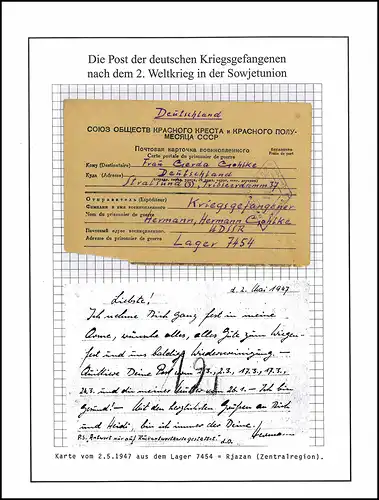 Die Post der deutschen Kriegsgefangenen
nach dem 2. Weltkrieg in der Sowjetunion
Deutschland
СОЮЗ ОБЩЕСТВ КРАСНОГО КРЕСТА и КРАСНОГО ПОЛУ-
МЕСЯЦА СССР
Почтовая карточка военнопленного
Carte postale du prisonnier de guerre
Кому (Destinataire) Frau Gerda
Куда (Adresse) Deutschland
Stralsund (3), Tribseerdamm 37
Отправитель (Expéditeur)
Фамилия и имя военнопленного Kriegsgefangener
Nom du prisonnier de guerre
Hermann, Hermann
Почтовый адрес военнопленного UDSSR
Adresse du prisonnier de guerre Lager 7454
d. 2. Mai 1947
Liebste!
Ich nehme Dich ganz fest in meine
Arme, wünsche alles, alles Gute zum Wiegen-
fest und uns baldige Wiedervereinigung. -
Quittiere Deine Post vom 2.3., 17.3., 19.3.,
24.3. und die meiner Mutter vom 26.1. - Ich bin
gesund! - Mit den herzlichsten Grüßen an Dich
und Heidi, bin ich immer der Deine.
P.S. Antwort nur auf
D.O. Hermann
Karte vom 2.5.1947 aus dem Lager 7454 = Rjazan (Zentralregion).